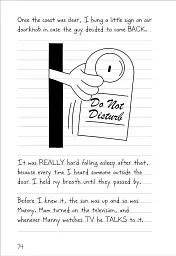 Once the coast was clear, I hung a little sign on our
doorknob in case the guy decided to come BACK.
Do Not
Disturb
It was REALLY hard falling asleep after that,
because every time I heard someone outside the
door I held my breath until they passed by.
Before I knew it, the sun was up and so was
Manny. Mom turned on the television, and
whenever Manny watches TV he TALKS to it.
74